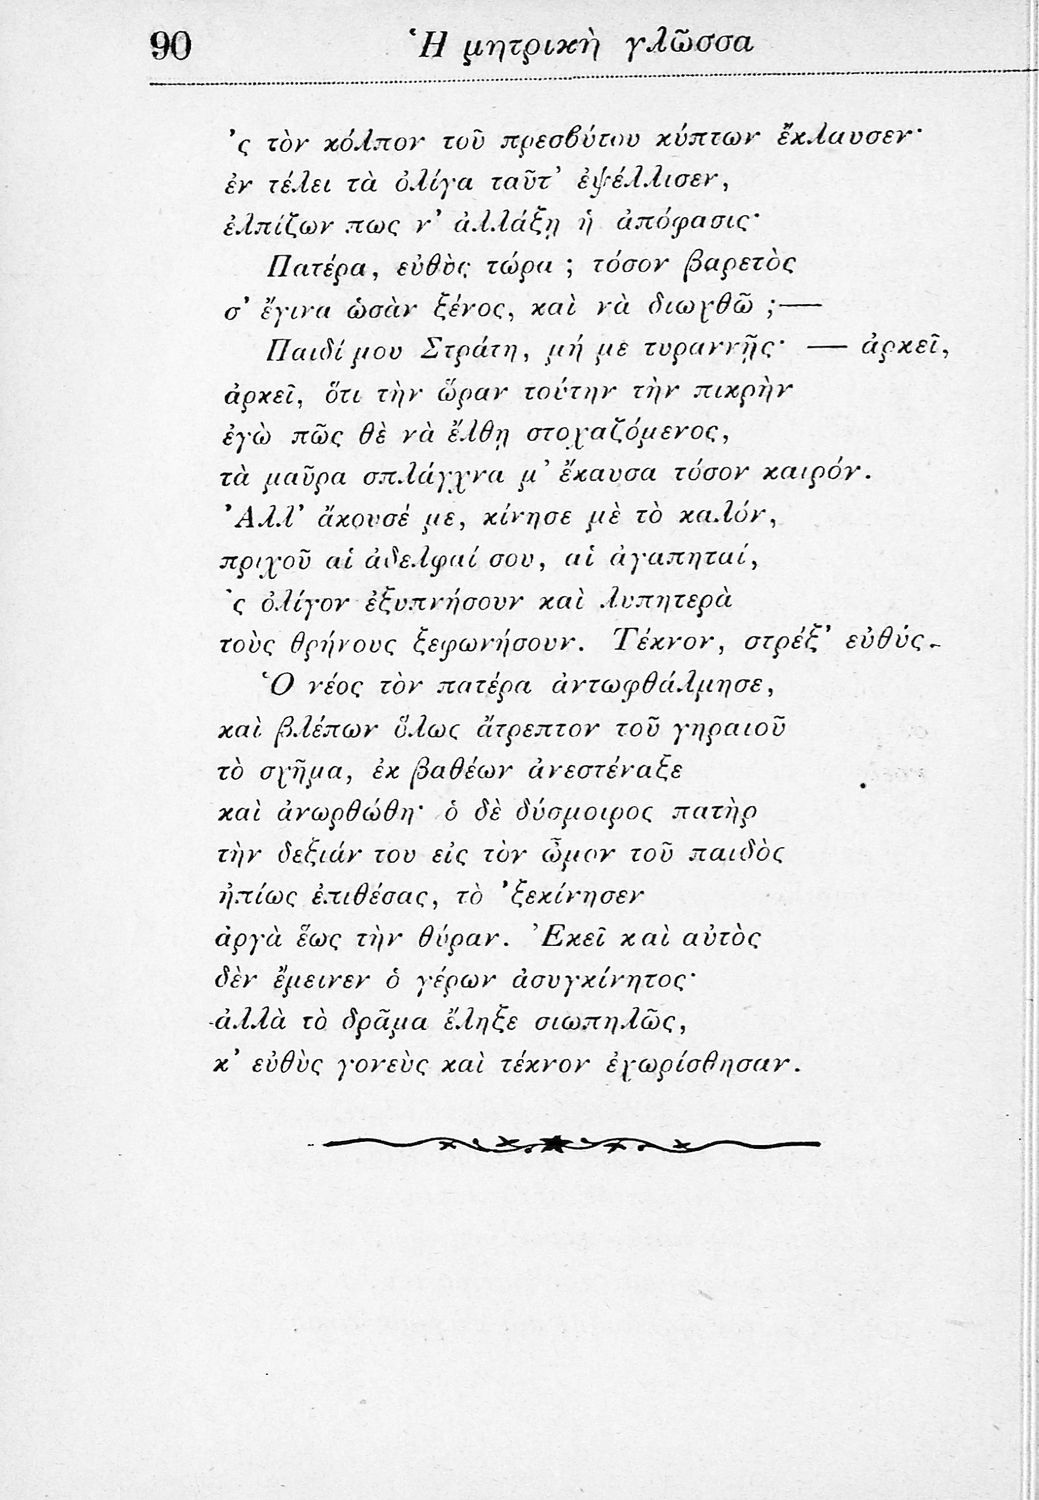 90 Ἡ μητρικὴ γλῶσσα
'ς τὸν κόλπον τοῦ πρεσβύτου κύπτων ἔκλαυσεν·
ἐν τέλει τὰ ὀλίγα ταῦτ' ἐψέλλισεν,
ἐλπίζων πως ν' ἀλλάξῃ ἡ ἀπόφασις·
Πατέρα, εὐθὺς τώρα ; τόσον βαρετὸς
σ' ἔγινα ὡσὰν ξένος, καὶ νὰ διωχθῶ ;—
Παιδί μου Στράτη, μή με τυραννῇς· — ἀρκεῖ,
ἀρκεῖ, ὅτι τὴν ὥραν τούτην τὴν πικρὴν
ἐγὼ πῶς θὲ νὰ ἔλθῃ στοχαζόμενος,
τὰ μαῦρα σπλάγχνα μ' ἔκαυσα τόσον καιρόν.
Ἀλλ' ἄκουσέ με, κίνησε μὲ τὸ καλόν,
πριχοῦ αἱ ἀδελφαί σου, αἱ ἀγαπηταί,
'ς ὀλίγον ἐξυπνήσουν καὶ λυπητερὰ
τοὺς θρήνους ξεφωνήσουν. Τέκνον, στρέξ' εὐθύς.
Ὁ νέος τὸν πατέρα ἀντωφθάλμησε,
καὶ βλέπων ὅλως ἄτρεπτον τοῦ γηραιοῦ
τὸ σχῆμα, ἐκ βαθέων ἀνεστέναξε
καὶ ἀνωρθώθη· ὁ δὲ δύσμοιρος πατὴρ
τὴν δεξιάν του εἰς τὸν ὦμον τοῦ παιδὸς
ἠπίως ἐπιθέσας, τὸ 'ξεκίνησεν
ἀργὰ ἕως τὴν θύραν. Ἐκεῖ καὶ αὐτὸς
δὲν ἔμεινεν ὁ γέρων ἀσυγκίνητος·
ἀλλὰ τὸ δρᾶμα ἔληξε σιωπηλῶς,
κ' εὐθὺς γονεὺς καὶ τέκνον ἐχωρίσθησαν.